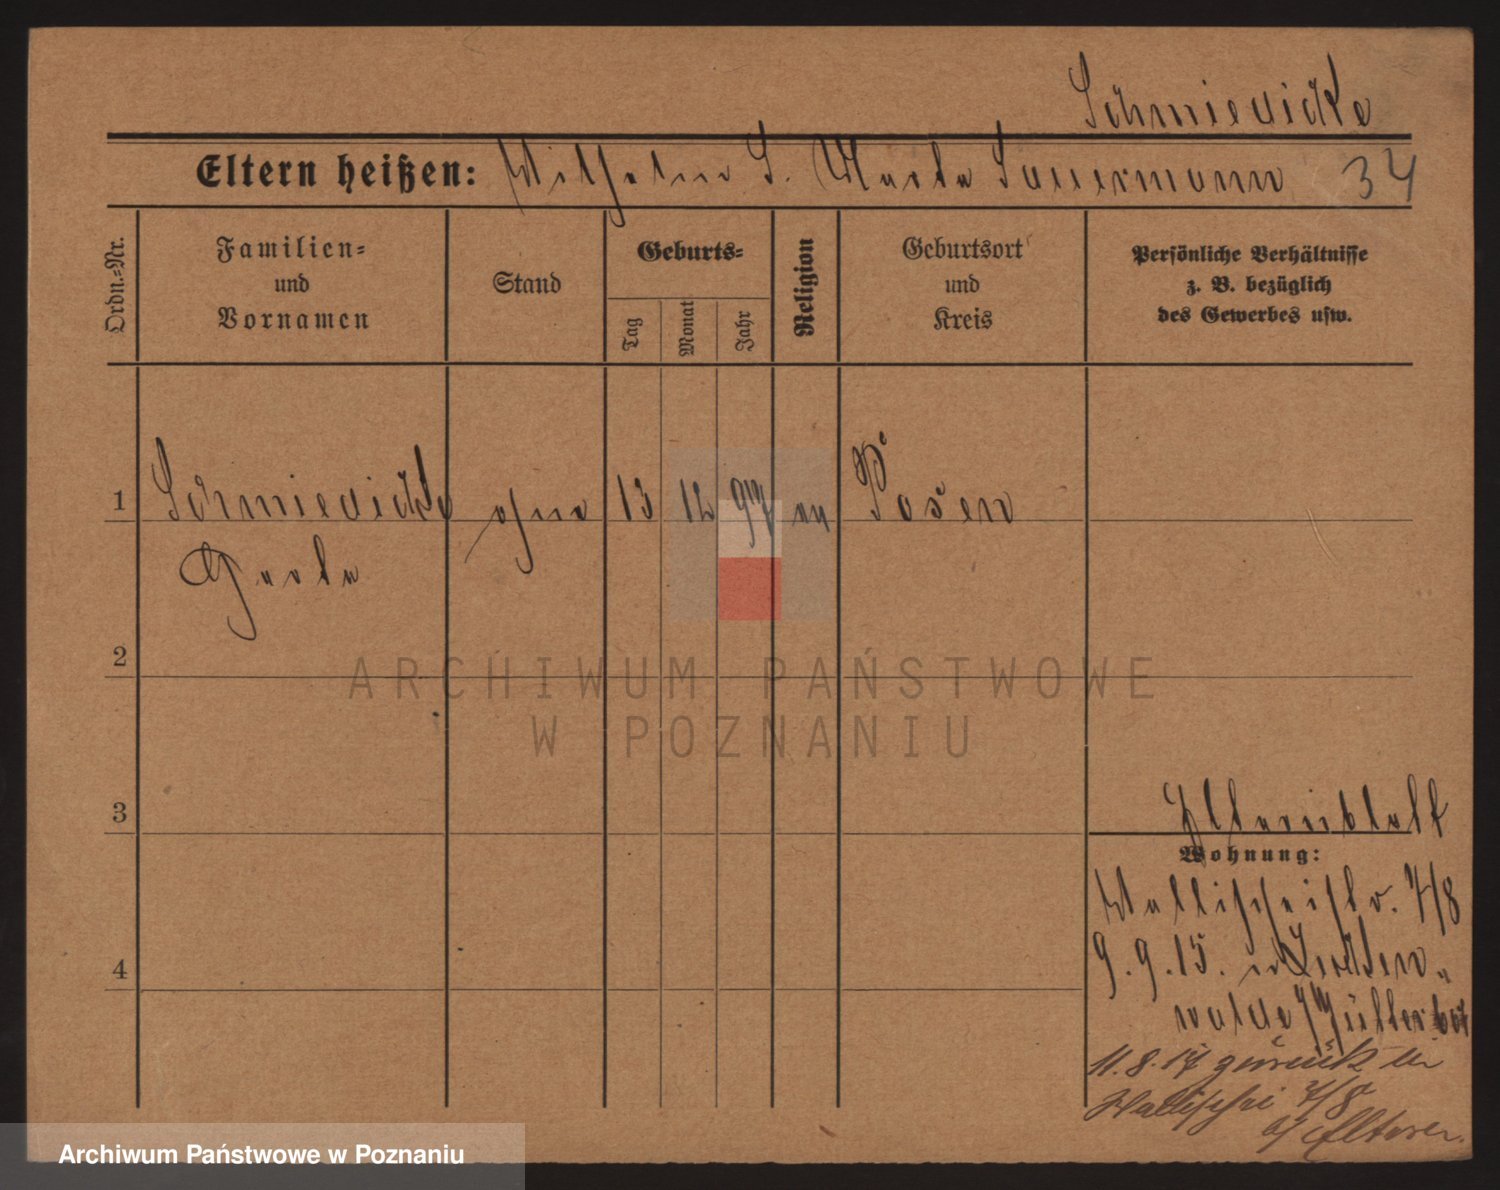 Schmiedicke
Eltern heißen: Wilhelm S. Marta Sauermann 34
Ordn.=Nr.
Familien=
und
Vornamen
Stand
Geburts=
Tag
Monat
Jahr
Religion
Geburtsort
und
Kreis
Persönliche Verhältnisse
z. B. bezüglich
des Gewerbes usw.
1 Schmiedicke ohne 13 12 97 ev Posen
2
3
4
Elternblatt
Wohnung:
Wallischeistr. 7/8
9. 9. 15. n
walde / Jüterbog
11. 8. 17 zurück
Wallischei 7/8
b/ Eltern.
ARCHIWUM PAŃSTWOWE
W POZNANIU
Archiwum Państwowe w Poznaniu